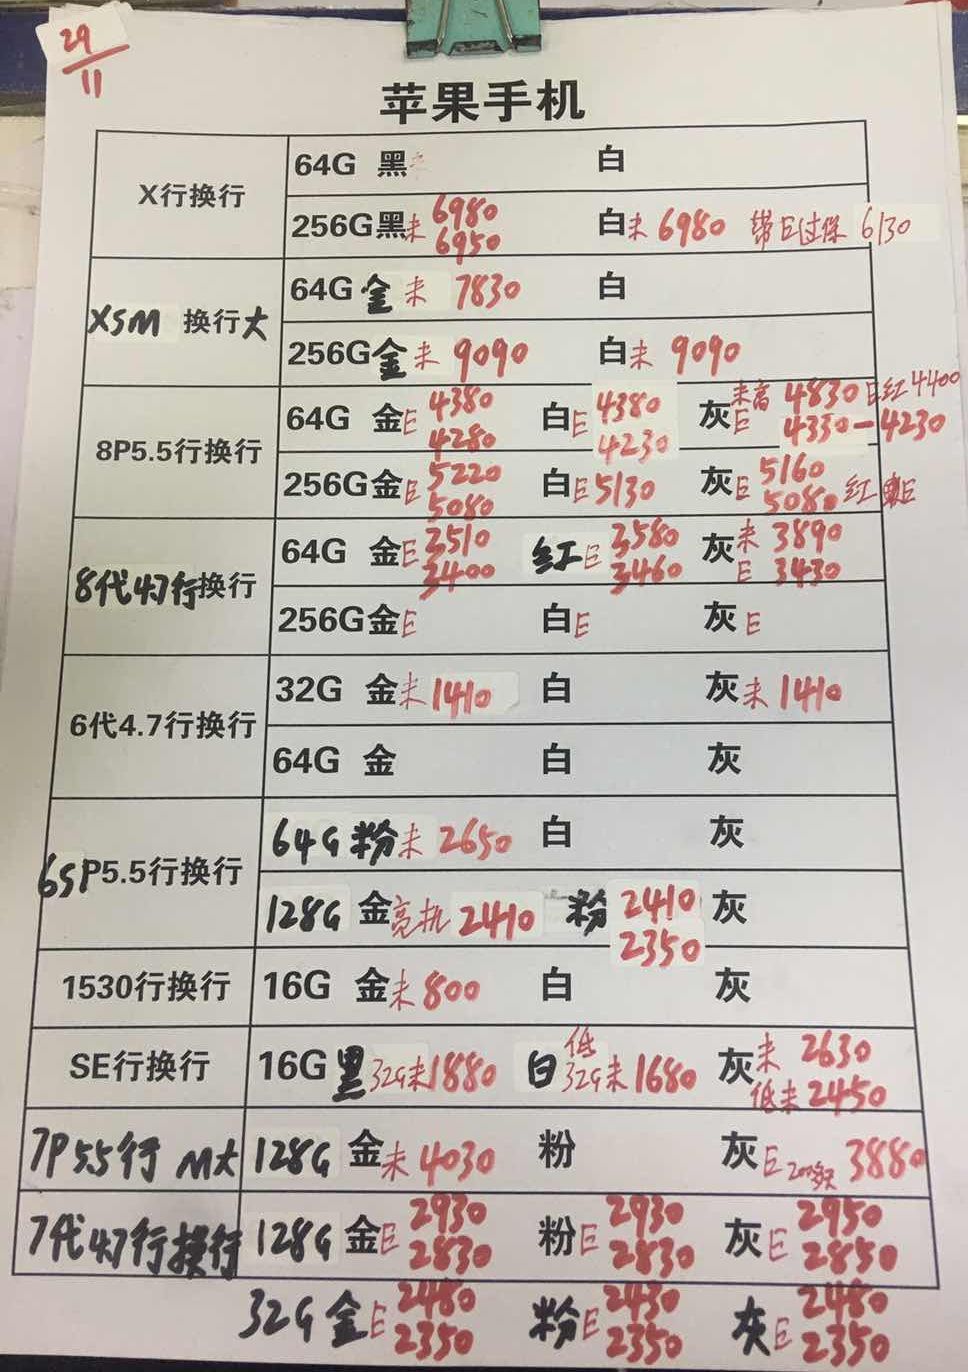 29
11
苹果手机
X行换行
64G 黑 白
256G黑未 6980 6950 白未 6980 带E过保 6130
XSM 换行大
64G 金 未 7830 白
256G金未 9090 白未 9090
8P5.5行换行
64G 金E 4380 4280 白E 4380 4230 灰 未高 4830 E红4400 E 4330-4230
256G金E 5220 5080 白E 5130 灰E 5160 5080 红 E
8代4.7行换行
64G 金E 3510 3400 红E 3580 3460 灰未 3890 E 3430
256G金E 白E 灰E
6代4.7行换行
32G 金未 1410 白 灰未 1410
64G 金 白 灰
6SP5.5行换行
64G 粉未 2650 白 灰
128G 金亮机 2410 粉 2410 2350 灰
1530行换行
16G 金未 800 白 灰
SE行换行
16G黑 32G未1880 白 低 32G未1680 灰未 2630 低未 2450
7P5.5行 M大
128G 金未 4030 粉 灰E 3880
7代4.7行换行
128G 金E 2930 2830 粉E 2930 2830 灰E 2950 2850
32G 金E 2480 2350 粉E 2430 2350 灰E 2480 2350